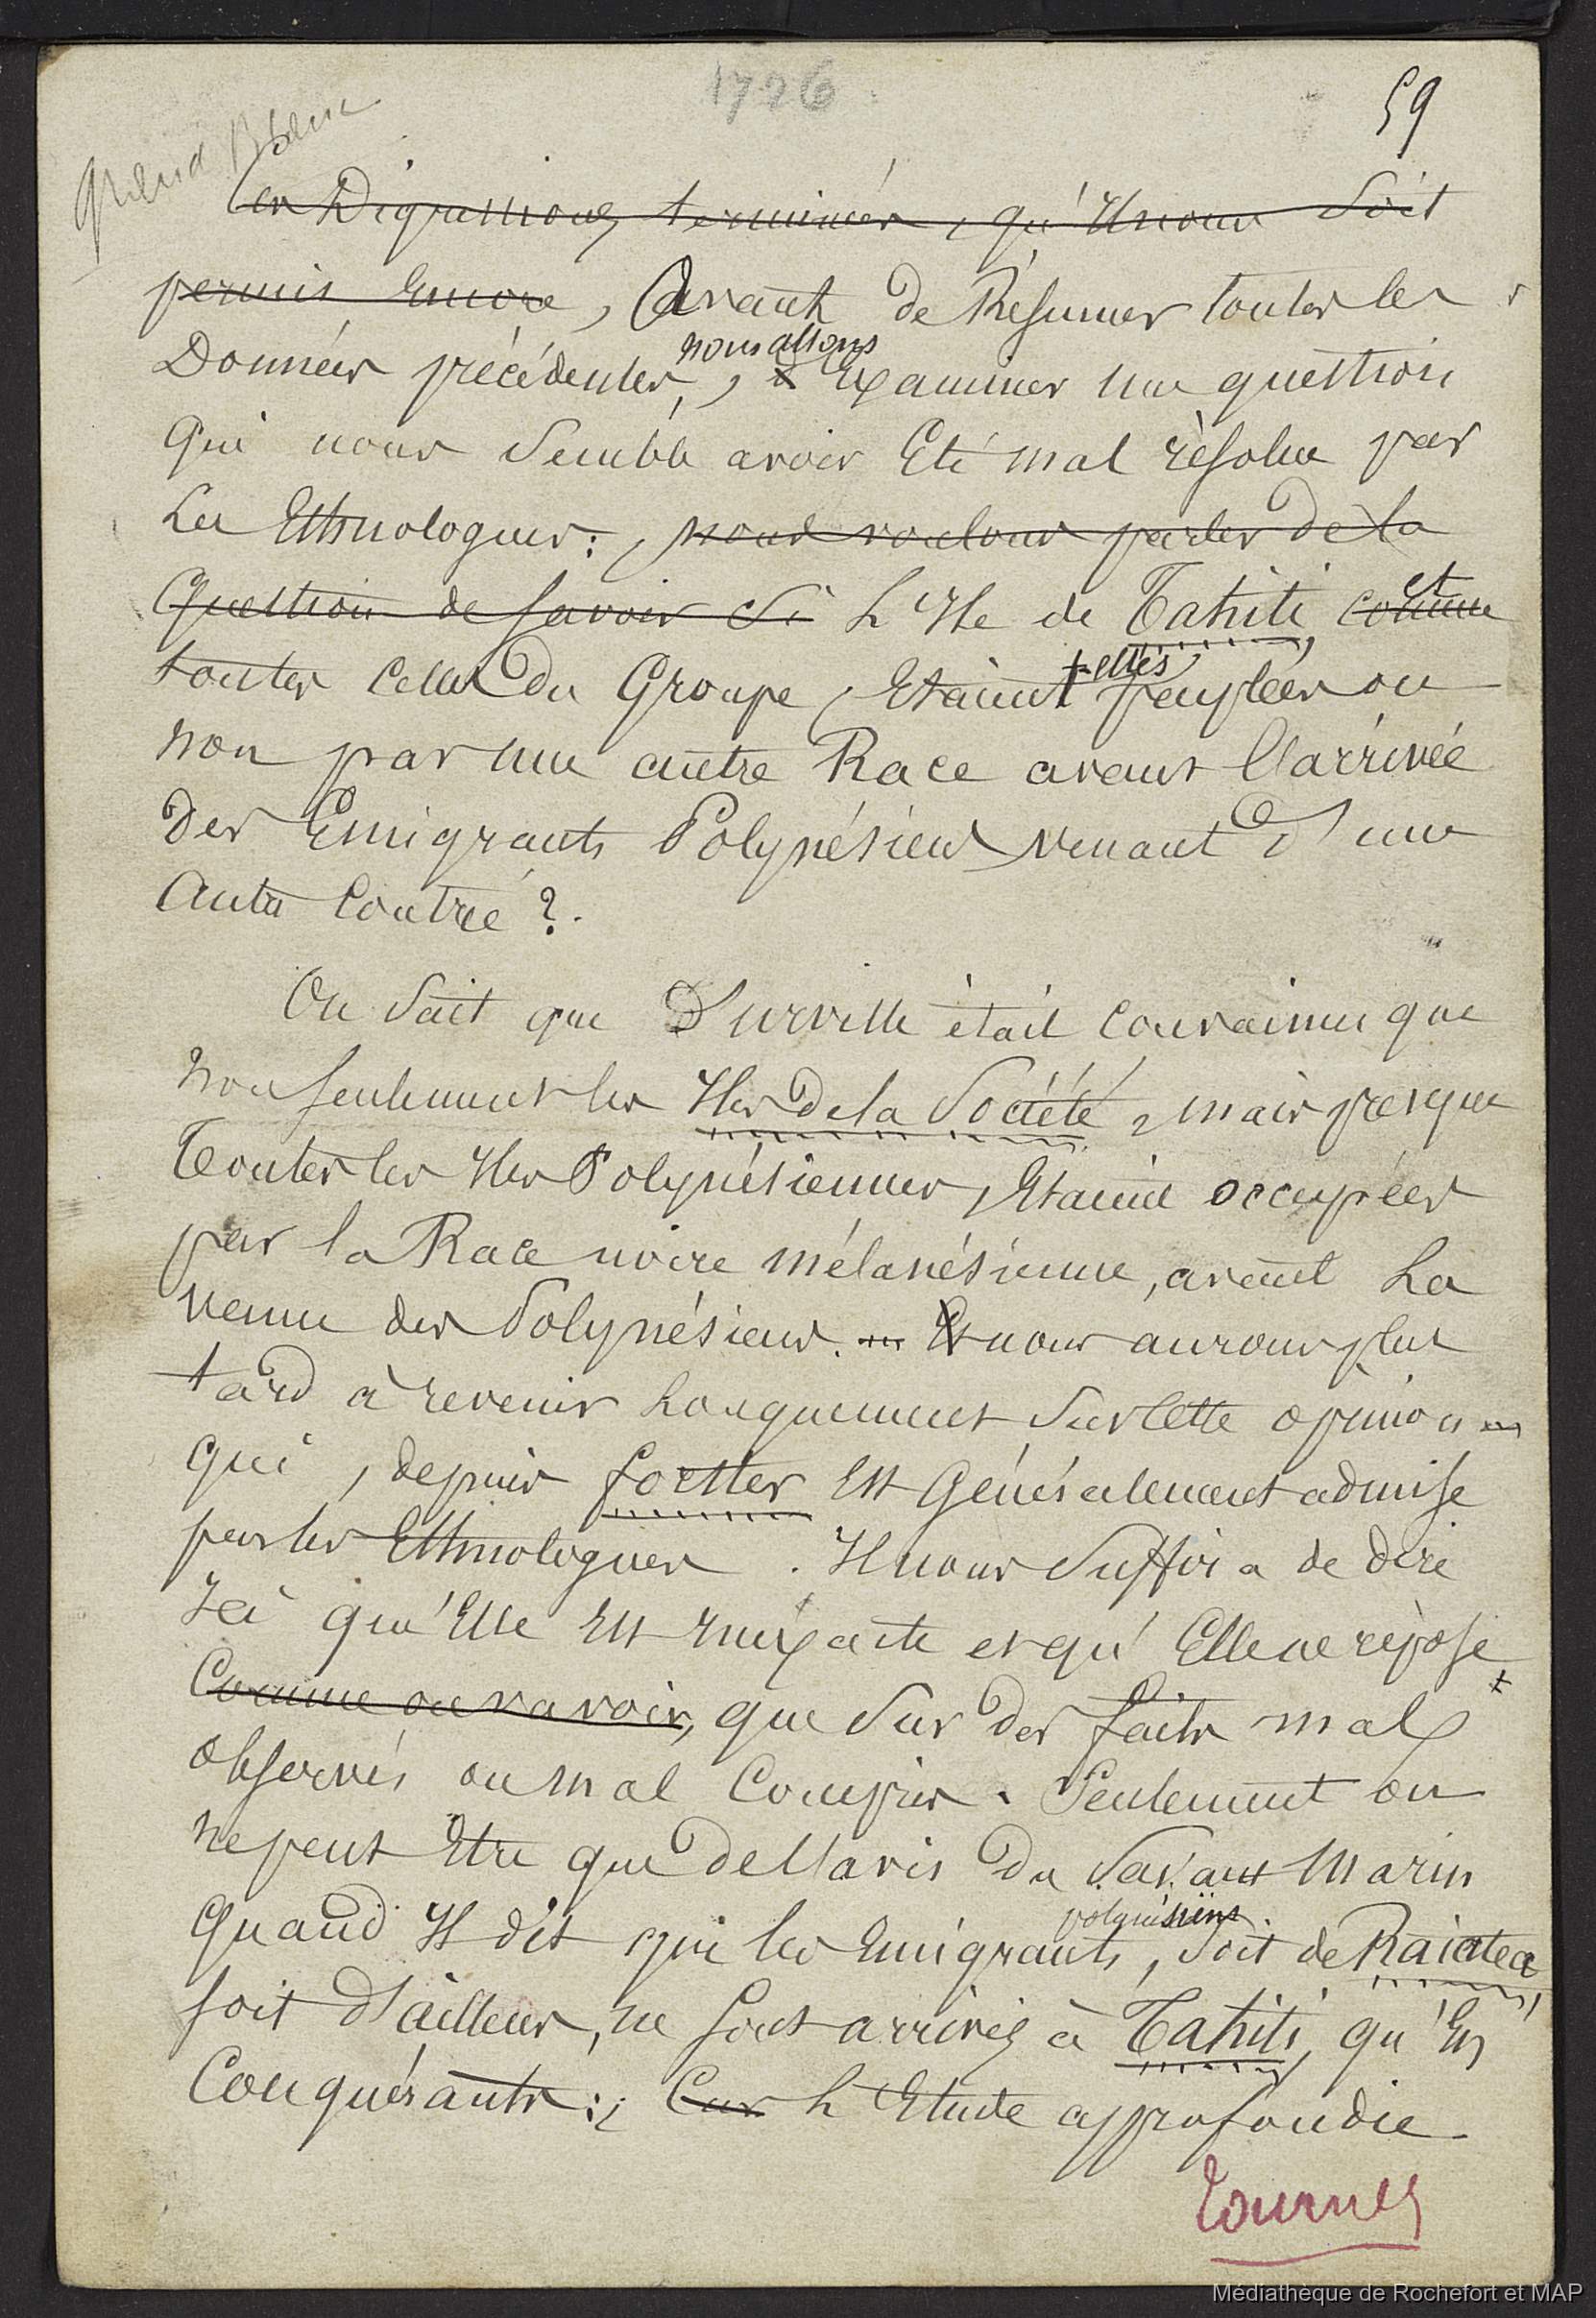 1726
59
Grand Blanc
Ces Digressions terminées, qu'Il nous soit
permis Encore, Avant de Résumer toutes les
Données précédentes, nous allons Examiner une question
Qui nous Semble avoir Eté mal résolue par
Les Ethnologues : nous voulons parler de la
Question de savoir Si L'Ile de Tahiti comme et
toutes Celles Du Groupe, Etaient-elles peuplées ou
non par une autre Race avant l'arrivée
Des Emigrants Polynésiens venant D'une
Autre Contrée ?.
On Sait que D'urville était Convaincu que
non seulement les Iles De la Société, mais presque
Toutes les Iles Polynésiennes, Etaient occupées
par la Race noire mélanésienne, avant La
venue des Polynésiens. — Et nous aurons plus
tard à revenir Longuement Sur Cette opinion —
Qui, depuis forster Est Généralement admise
par les Ethnologues. Il nous Suffira de dire
Ici qu'Elle Est inexacte et qu'Elle ne repose
Comme on va voir, que Sur Des faits mal
observés ou mal Compris. Seulement on
ne peut Etre que De l'avis Du Savant Marin
Quand Il dit que les Emigrants polynésiens, Soit de Raiatea
soit D'ailleurs, ne sont arrivés à Tahiti, qu'En
Conquérants : ; Car L'Etude approfondie
Tournez
Médiathèque de Rochefort et MAP